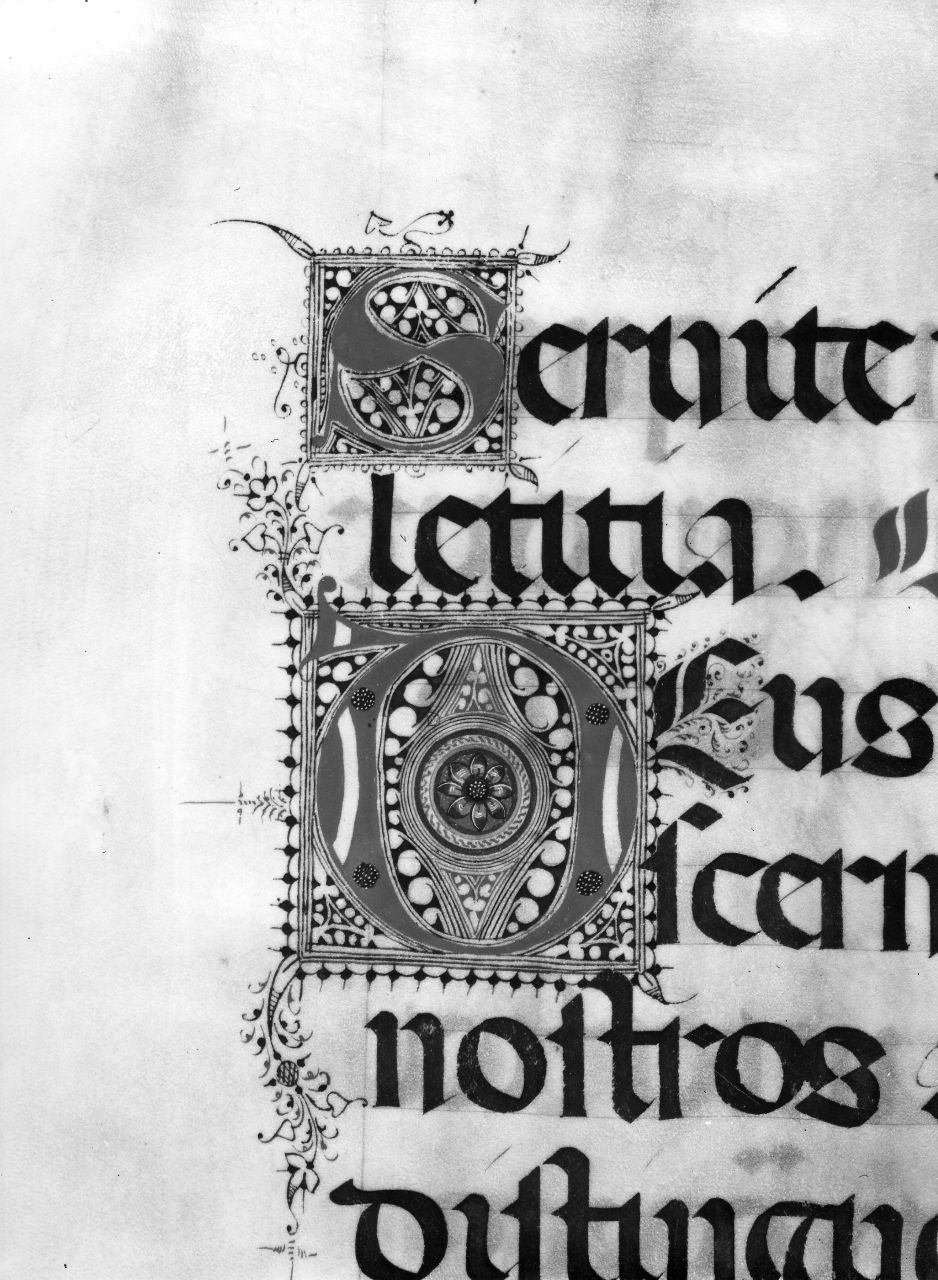 Seruite
letitia.
Deus
scern
nostros
distingu